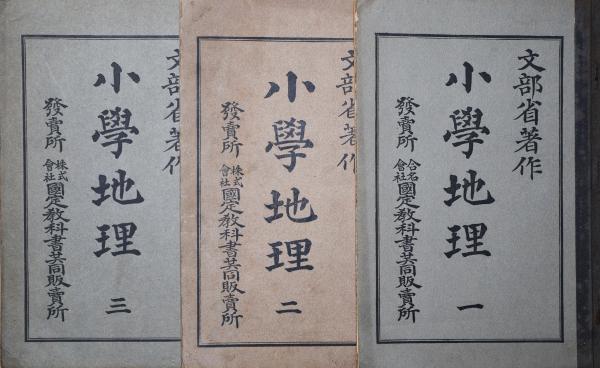 文部省著作
小學地理 一
發賣所 合名會社國定敎科書共同販賣所
文部省著作
小學地理 二
發賣所 株式會社國定敎科書共同販賣所
文部省著作
小學地理 三
發賣所 株式會社國定敎科書共同販賣所